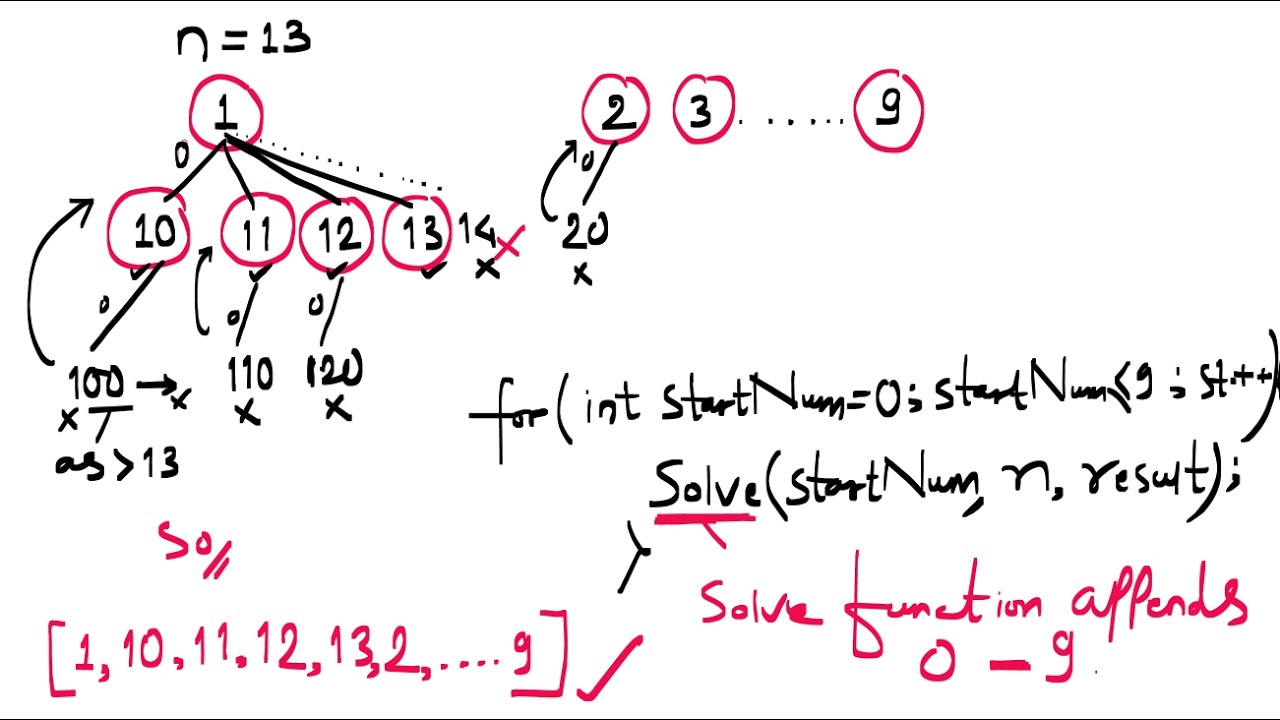 n = 13
1 2 3 ..... 9
0 0
10 11 12 13 14 x 20
x x
0 0 0
100 → x 110 120
x x x
as > 13
for( int startNum=0; startNum≤9; st.++)
Solve(startNum, n, result);
}
So,
Solve function appends
0 – 9.
[1, 10, 11, 12, 13, 2, .... 9]